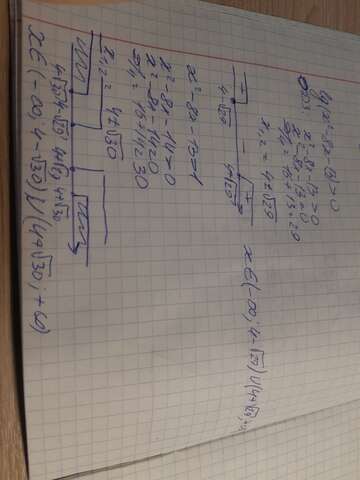 lg(x²-8x-13)>0
ОДЗ: x²-8x-13>0
x²-8x-13=0
D/4=16+13=29
x₁,₂=4±√29
+ - +
4-√29 4+√29
x∈(-∞; 4-√29)∪(4+√29; +∞)
x²-8x-13>1
x²-8x-14>0
x²-8x-14=0
D/4=16+14=30
x₁,₂=4±√30
4-√30 4-√29 4+√29 4+√30
x∈(-∞; 4-√30)∪(4+√30; +∞)